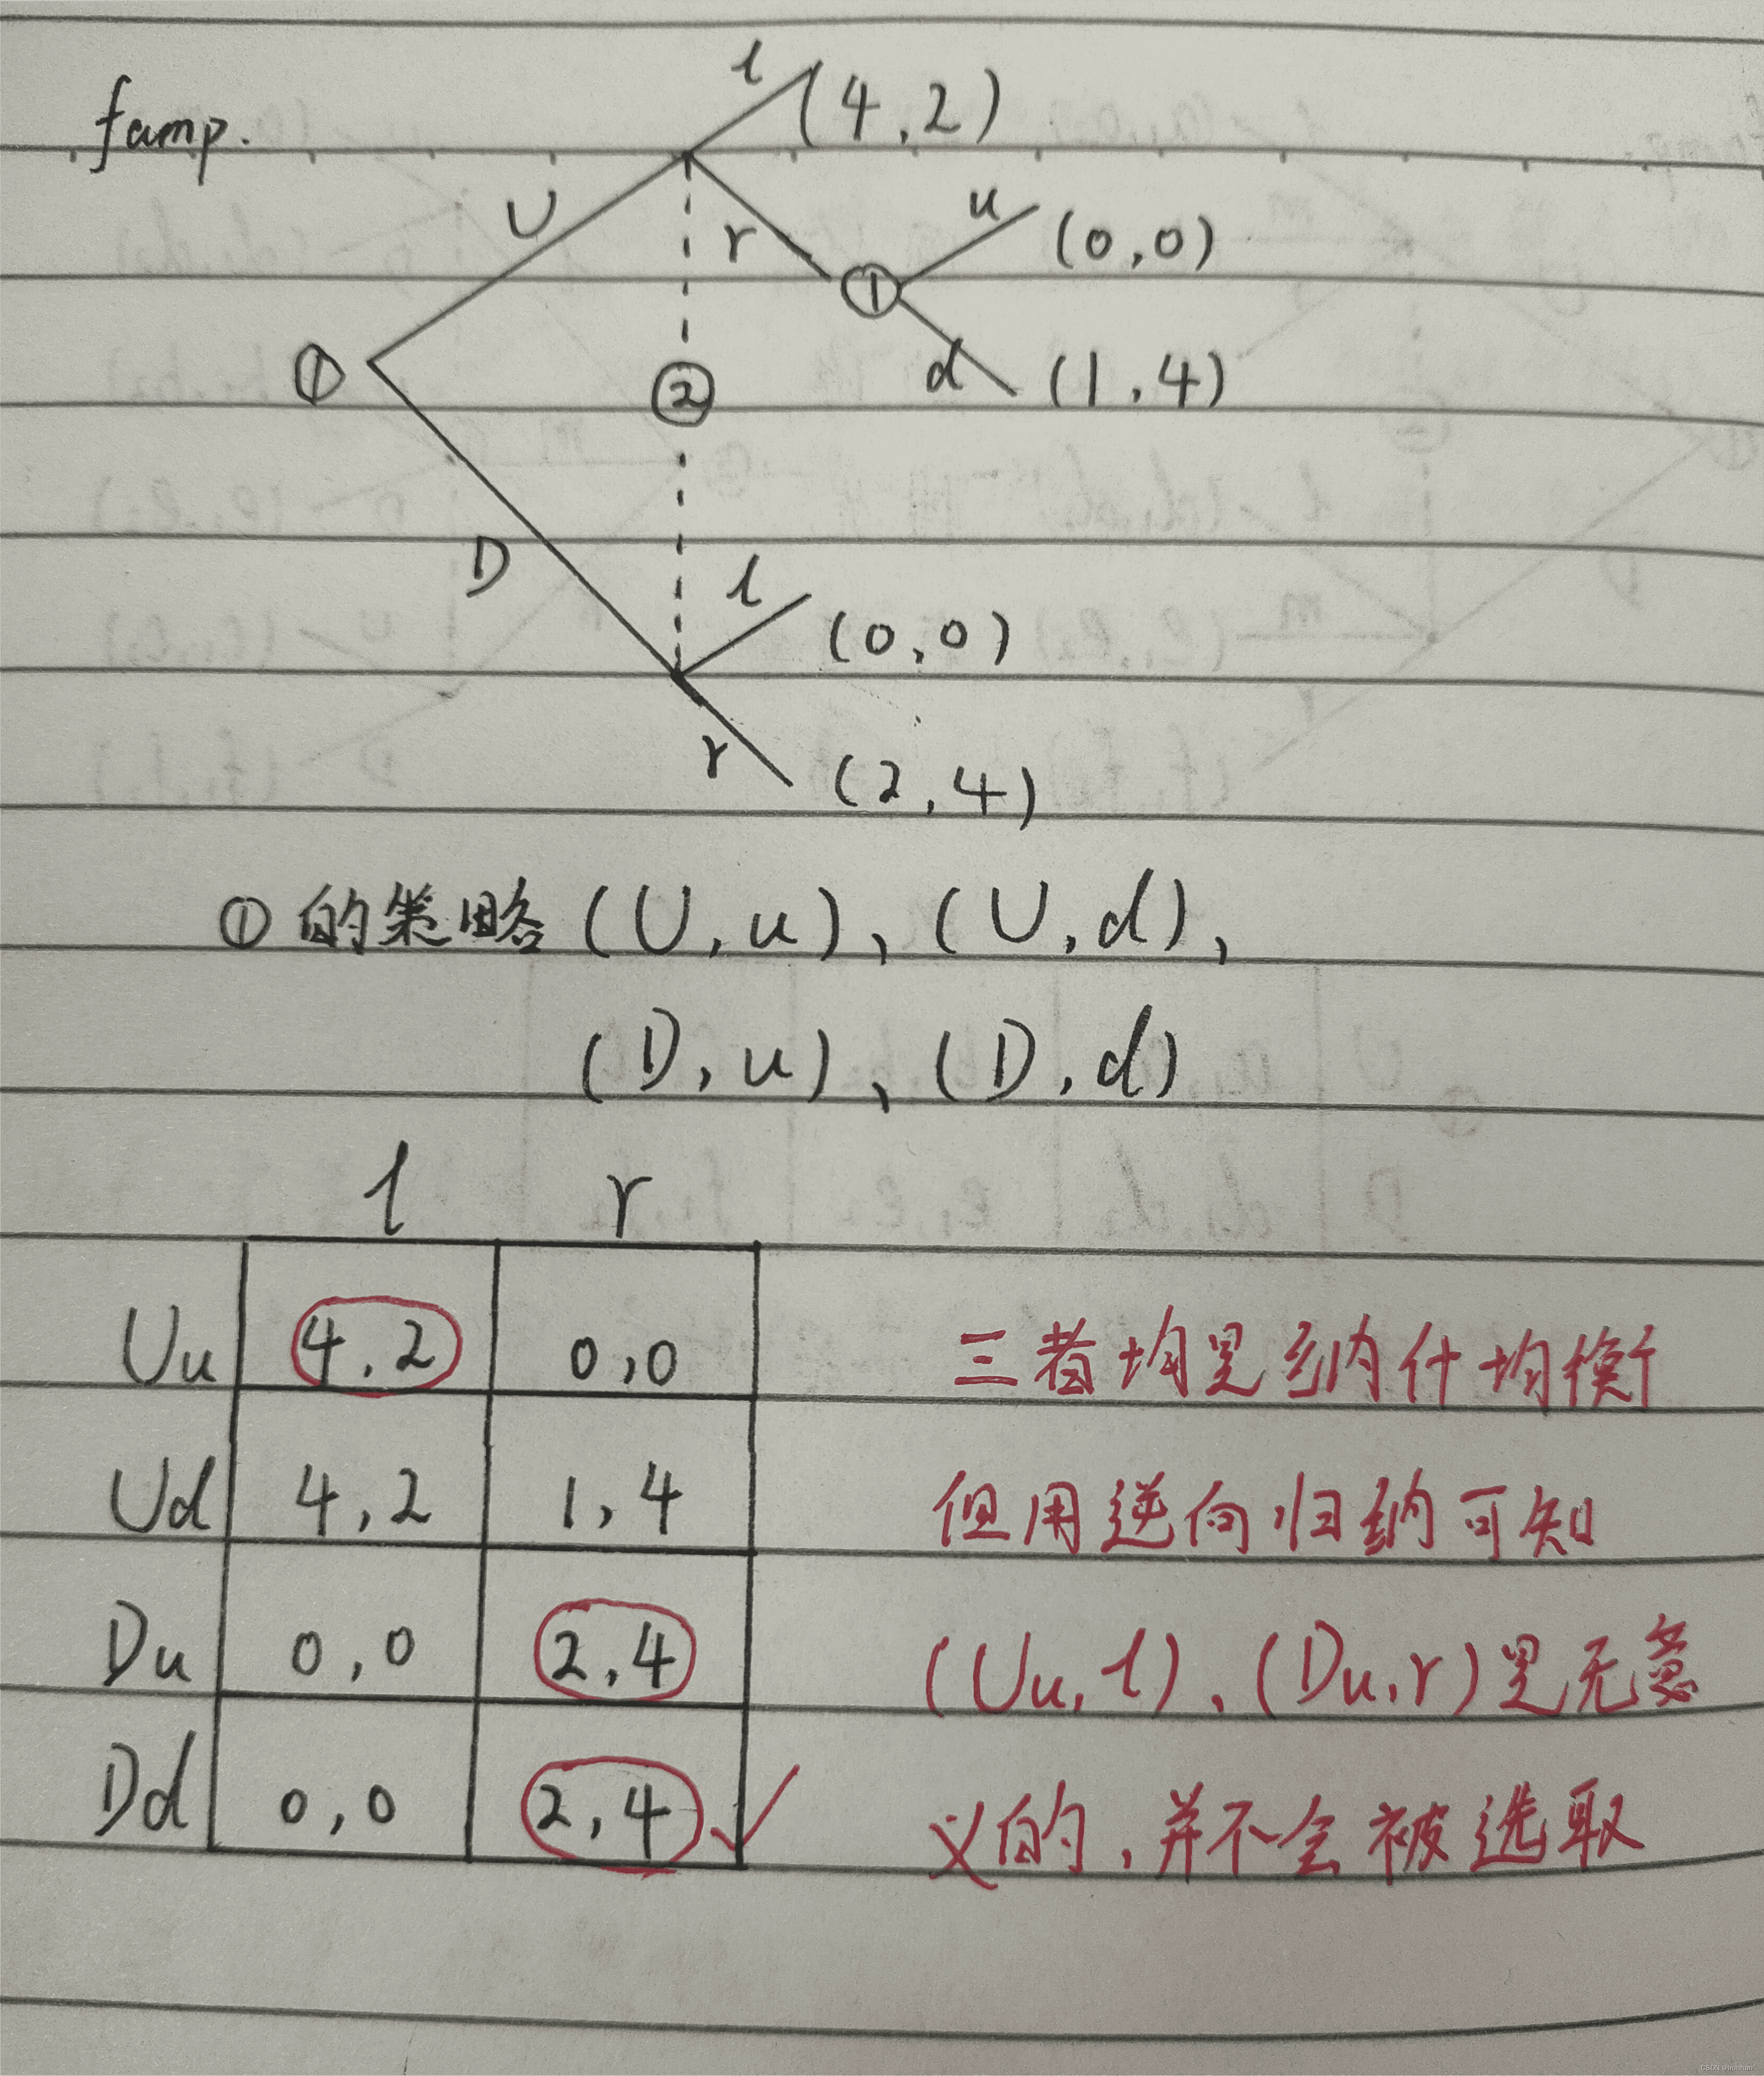 famp.
l (4,2)
U
r
u (0,0)
①
①
d (1,4)
②
D
l (0,0)
r (2,4)
①的策略(U,u)、(U,d),
(D,u)、(D,d)
l r
Uu 4,2 0,0 三者均是纳什均衡
Ud 4,2 1,4 但用逆向归纳可知
Du 0,0 2,4 (Uu,l)、(Du,r)是无意
Dd 0,0 2,4 ✓ 义的,并不会被选取